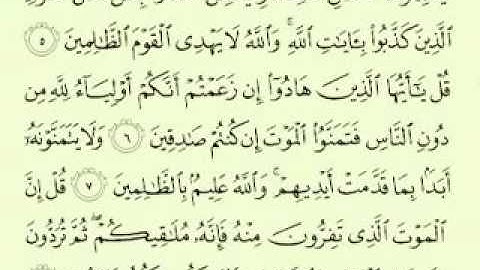 ٱلَّذِينَ كَذَّبُوا۟ بِـَٔايَٰتِ ٱللَّهِ ۚ وَٱللَّهُ لَا يَهْدِى ٱلْقَوْمَ ٱلظَّٰلِمِينَ ٥
قُلْ يَٰٓأَيُّهَا ٱلَّذِينَ هَادُوٓا۟ إِن زَعَمْتُمْ أَنَّكُمْ أَوْلِيَآءُ لِلَّهِ مِن
دُونِ ٱلنَّاسِ فَتَمَنَّوُا۟ ٱلْمَوْتَ إِن كُنتُمْ صَٰدِقِينَ ٦ وَلَا يَتَمَنَّوْنَهُۥٓ
أَبَدًۢا بِمَا قَدَّمَتْ أَيْدِيهِمْ ۚ وَٱللَّهُ عَلِيمٌۢ بِٱلظَّٰلِمِينَ ٧ قُلْ إِنَّ
ٱلْمَوْتَ ٱلَّذِى تَفِرُّونَ مِنْهُ فَإِنَّهُۥ مُلَٰقِيكُمْ ۖ ثُمَّ تُرَدُّونَ